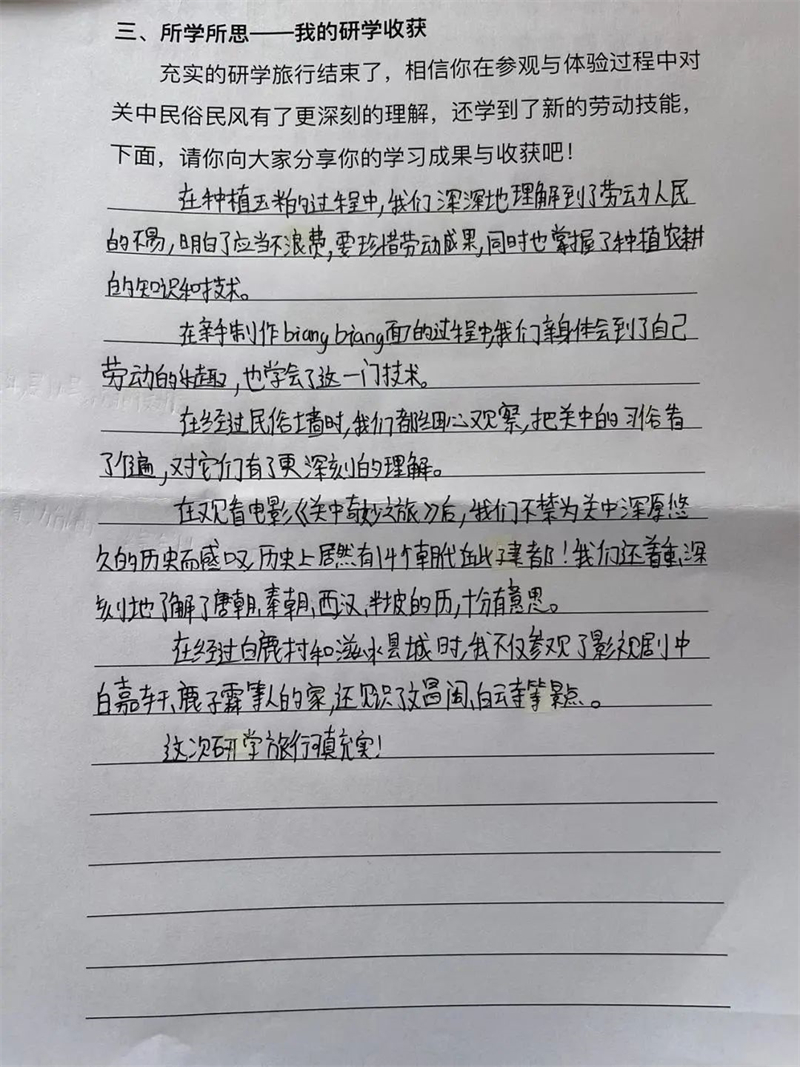 三、所学所思——我的研学收获
充实的研学旅行结束了，相信你在参观与体验过程中对
关中民俗民风有了更深刻的理解，还学到了新的劳动技能，
下面，请你向大家分享你的学习成果与收获吧！
在种植玉米的过程中，我们深深地理解到了劳动人民
的不易，明白了应当不浪费，要珍惜劳动成果，同时也掌握了种植农耕
的知识和技术。
在亲手制作biangbiang面的过程中，我们亲身体会到了自己
劳动的乐趣，也学会了这一门技术。
在经过民俗墙时，我们都细心观察，把关中的习俗看
了个遍，对它们有了更深刻的理解。
在观看电影《关中奇妙之旅》后，我们不禁为关中深厚悠
久的历史而感叹，历史上居然有14个朝代在此建都！我们还着重，深
刻地了解了唐朝、秦朝、西汉、半坡的历，十分有意思。
在经过白鹿村和滋水县城时，我不仅参观了影视剧中
白嘉轩、鹿子霖等人的家，还见识了文昌阁、白云寺等景点。
这次研学旅行可真充实！